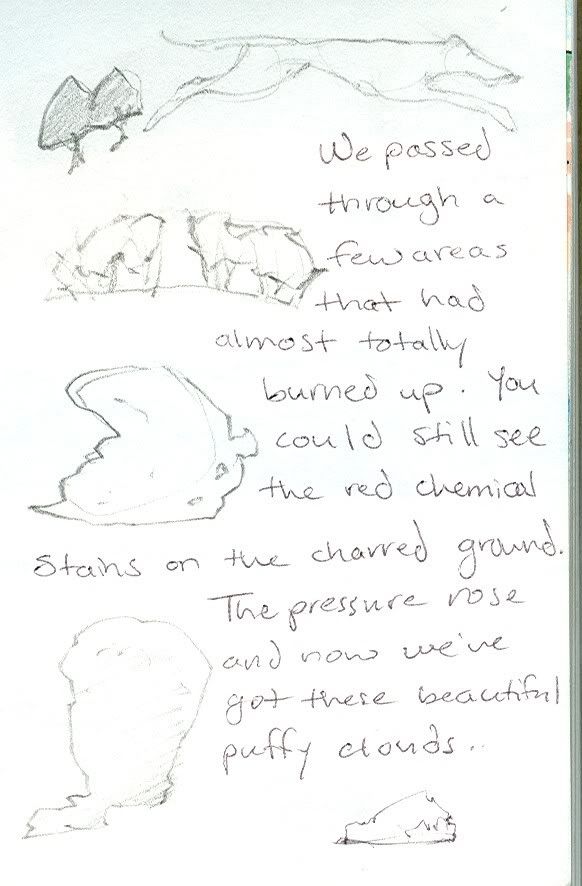 We passed
through a
few areas
that had
almost totally
burned up. You
could still see
the red chemical
stains on the charred ground.
The pressure rose
and now we've
got these beautiful
puffy clouds..